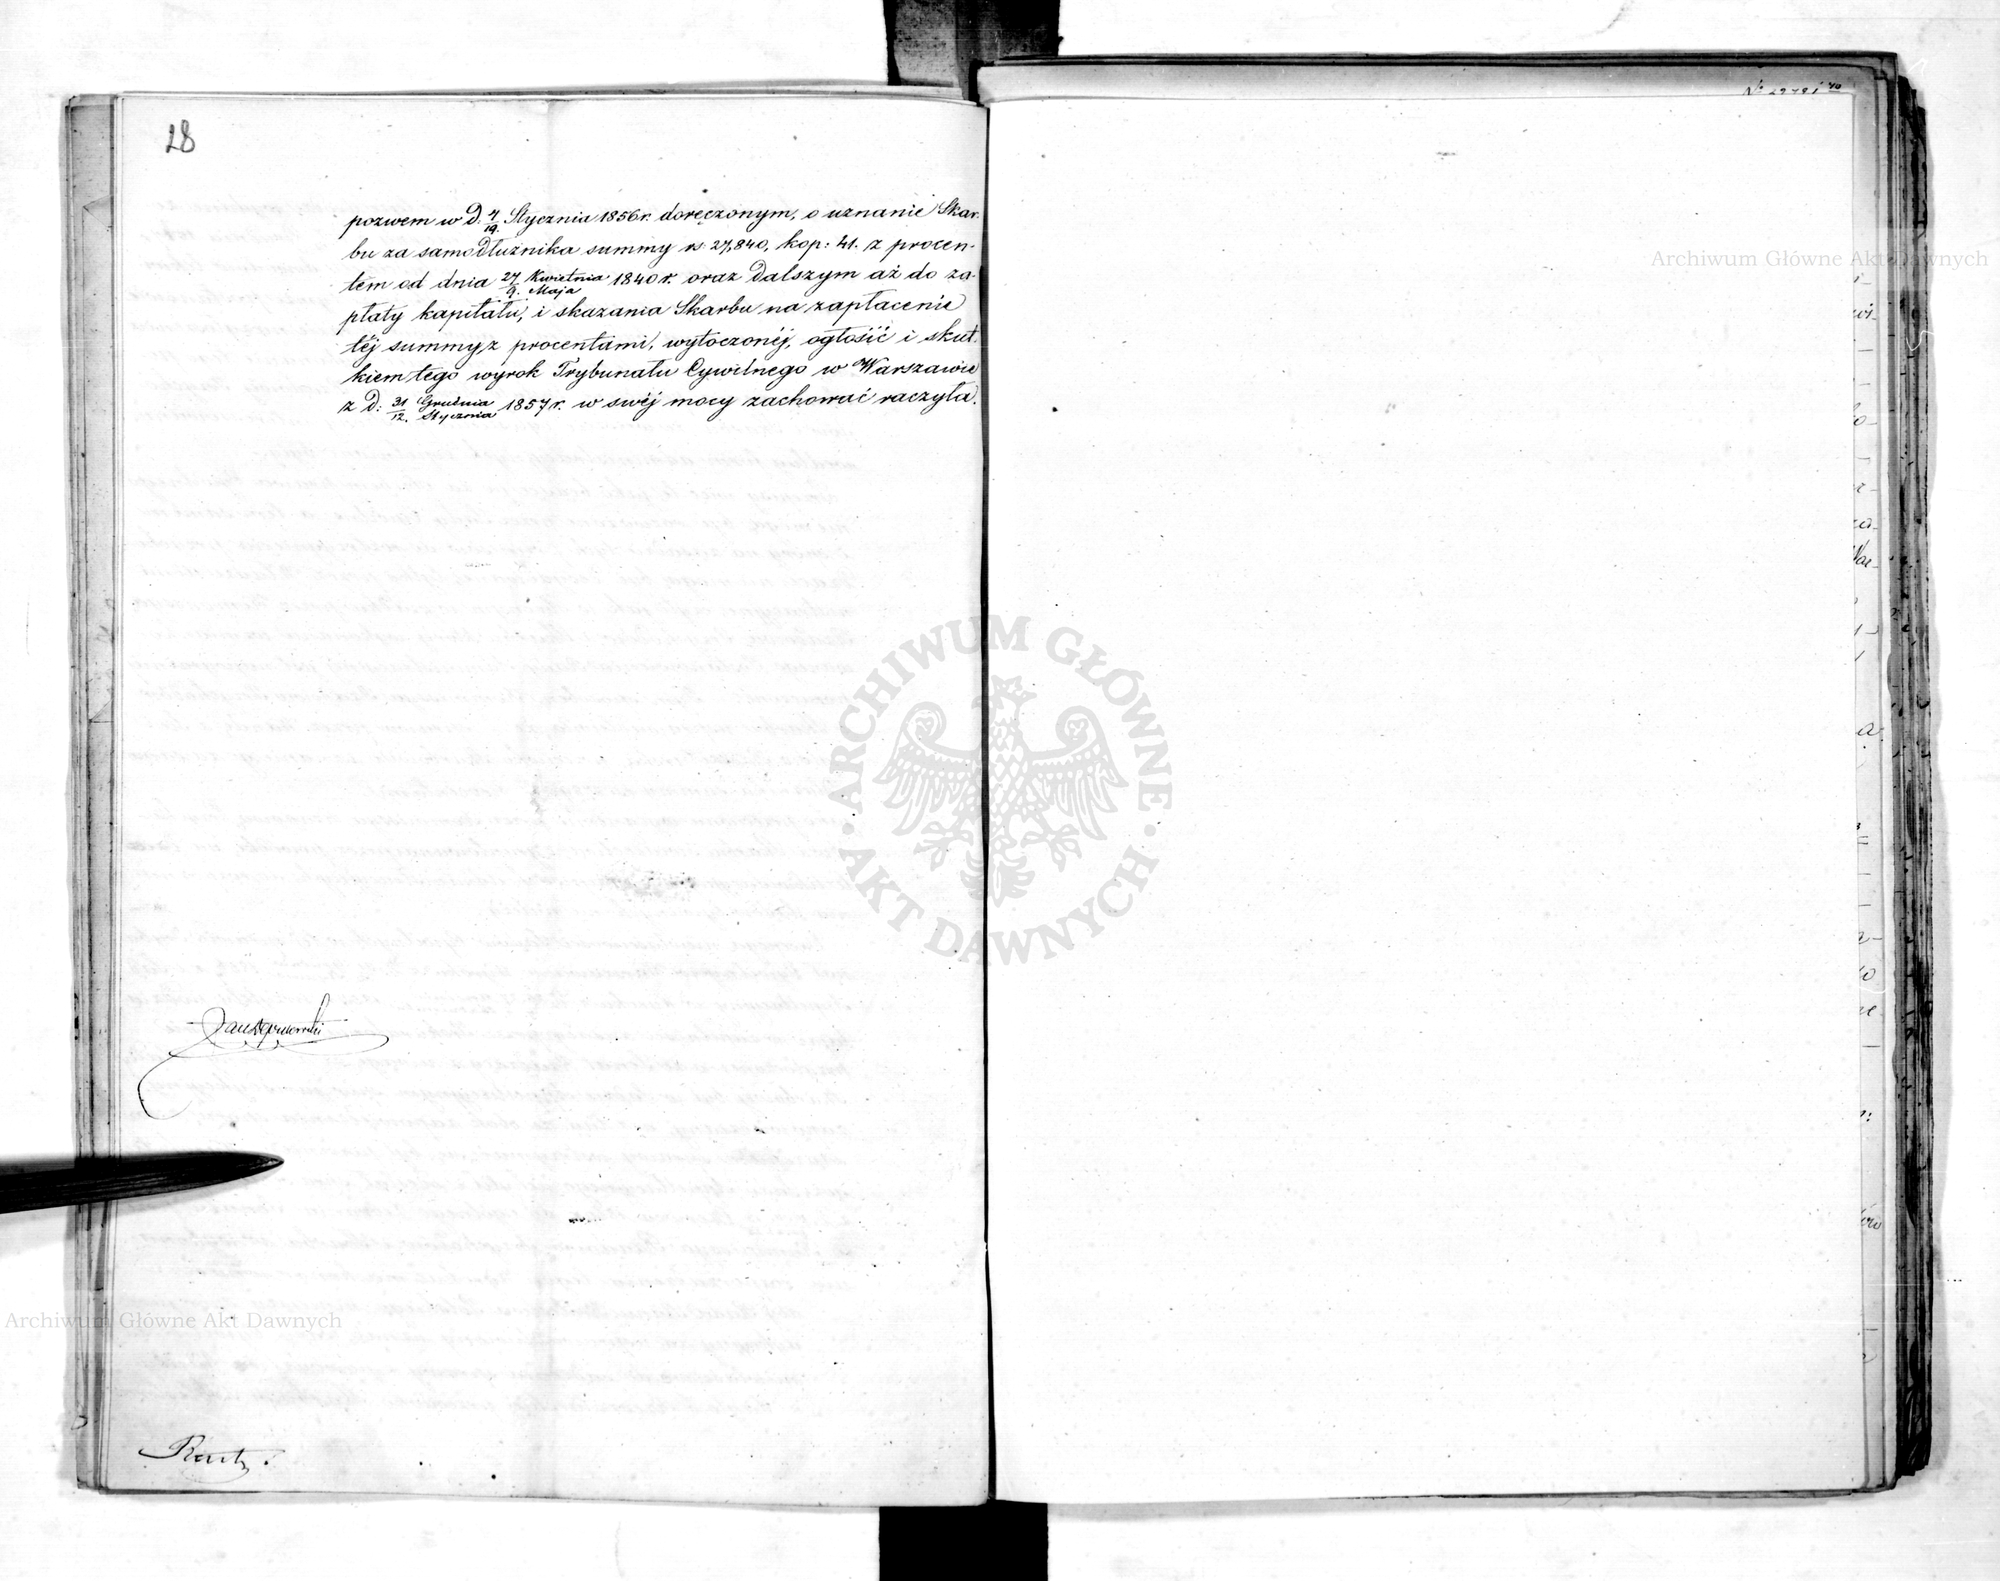 28
pozwem w D. 7/19. Stycznia 1856 r. doręczonym, o uznanie Skar-
bu za samodłużnika summy rs: 27,840, kop: 41. z procen-
tem od dnia 27 Kwietnia/9. Maja 1840 r. oraz dalszym aż do za-
płaty kapitału, i skazania Skarbu na zapłacenie
téj summy z procentami, wytoczonéj, ogłosić i skut-
kiem tego wyrok Trybunału Cywilnego w Warszawie
z D: 31 Grudnia/12. Stycznia 1857 r. w swéj mocy zachować raczyła.
ARCHIWUM GŁÓWNE
AKT DAWNYCH
Archiwum Główne Akt Dawnych
Archiwum Główne Akt Dawnych